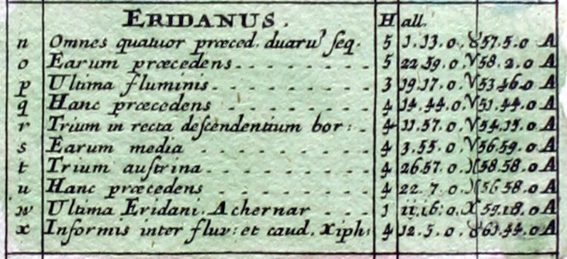 ERIDANUS. Hall.
n Omnes quatuor præced. duarũ seq. 5 1.13.0.♉57.5.0 A
o Earum præcedens 5 22.59.0.♈58.2.0 A
p Ultima fluminis 3 19.17.0.♈53.46.0 A
q Hanc præcedens 4 14.44.0.♈51.44.0 A
r Trium in recta descendentium bor: 4 11.57.0.♈54.15.0 A
s Earum media 4 3.55.0.♈56.59.0 A
t Trium austrina 4 26.57.0.♓58.58.0 A
u Hanc præcedens 4 22.7.0.♓56.58.0 A
w Ultima Eridani. Achernar 1 11.16.0.♓59.18.0 A
x Informis inter fluv: et caud. Xiph: 4 12.5.0.♉63.44.0 A